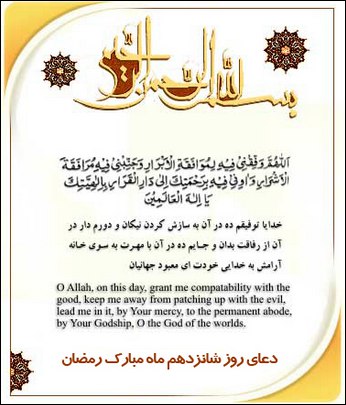 بسم الله الرحمن الرحیم
اَللّهُمَّ وَفِّقْنی فیهِ لِمُوافَقَةِ الْاَبْرارِ وَجَنِّبْنی فیهِ مُرافَقَةَ
الْاَشْرارِ وَاوِنی فیهِ بِرَحْمَتِكَ اِلی دارِ الْقَرارِ بِاِلهِیَّتِكَ
یا اِلهَ الْعالَمینَ
خدایا توفیقم ده در آن به سازش کردن نیکان و دورم دار در
آن از رفاقت بدان و جایم ده در آن با مهرت به سوی خانه
آرامش به خدایی خودت ای معبود جهانیان
O Allah, on this day, grant me compatability with the
good, keep me away from patching up with the evil,
lead me in it, by Your mercy, to the permanent abode,
by Your Godship, O the God of the worlds.
دعای روز شانزدهم ماه مبارک رمضان